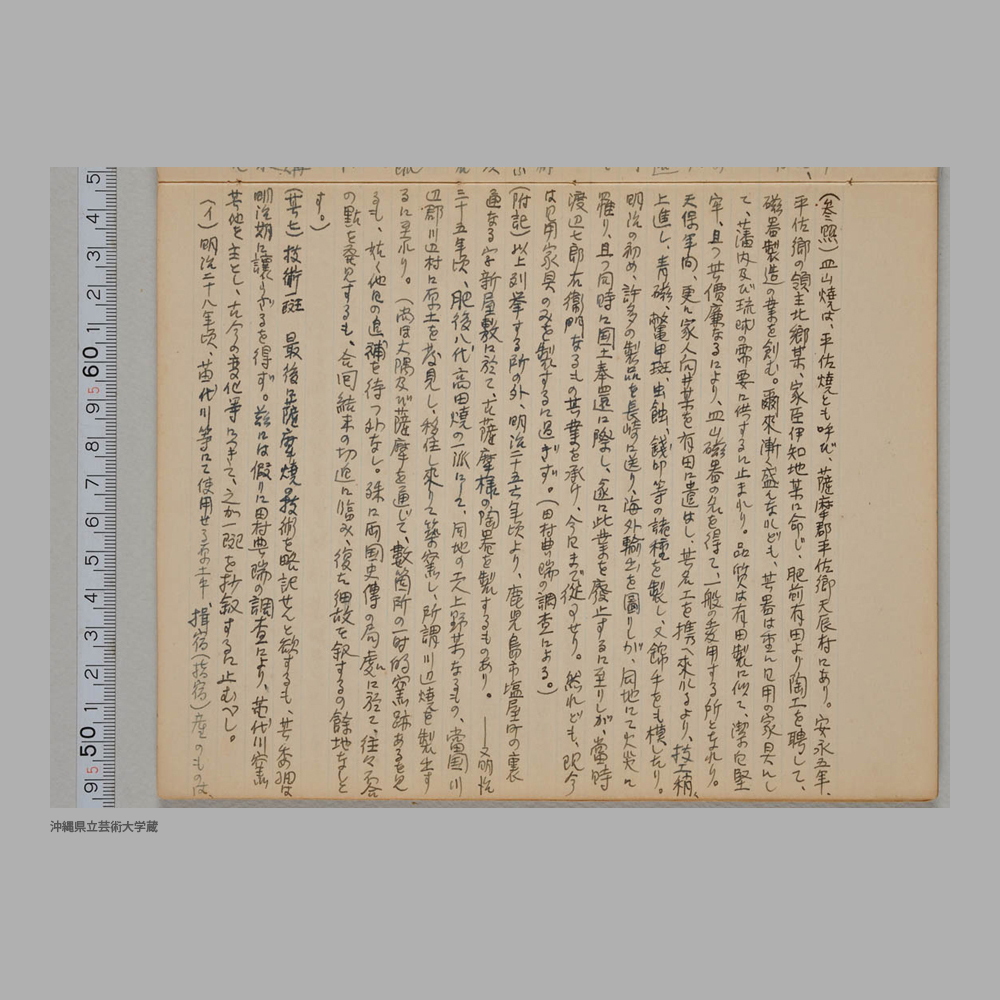 (参照)皿山焼は、平佐焼とも呼び、薩摩郡平佐郷天辰村にあり。安永五年、
平佐郷の領主北郷某、家臣伊知地某に命じ、肥前有田より陶工を聘して、
磁器製造の業を創む。爾來漸く盛んなれども、其器は重に日用の家具にし
て、藩内及び琉球の需要に供するに止まれり。品質は有田製に似て、潔白堅
牢、且つ其價廉なるにより、皿山磁器の名を得て、一般の愛用する所となれり。
天保年間、更に家人向井某を有田に遣はし、其名工を携へ來れるより、技倆、
上進し、青磁、鼈甲斑、虫蝕、錢印等の諸種を製し、又錦手をも模したり。
明治の初め、許多の製品を長崎に送り、海外輸出を圖りしが、同地にて火災に
罹り、且つ同時に國土奉還に際し、遂に此業を廢止するに至りしが、當時
渡辺七郎右衞門なるもの其業を承け、今日まで從事せり。然れども、現今
は日用家具のみを製するに過ぎず。(田村典瑞の調査による。)
(附記)以上列挙する所の外、明治二十五六年頃より、鹿児島市塩屋町の裏
通なる字新屋敷に於て、古薩摩様の陶器を製するものあり。——又明治
三十五年頃、肥後八代、高田焼の一派にして、同地の工人上野某なるもの、當国川
辺郡川辺村に原土を發見し、移住し來りて築窯し、所謂川辺焼を製出す
るに至れり。(尚ほ大隅及び薩摩を通じて、數箇所の一時的窯跡あるを見
るも、姑く他日の追補を待つ外なし。殊に両国史傳の局處に於て、往々不合
の點を發見するも、合同結末の切迫に臨み、復た細故を叙するの餘地なしと
す。)
(其七)技術一斑 最後に薩摩焼の技術を略記せんと欲するも、其委細は
明治期に讓らざるを得ず。茲には假りに田村典瑞の調査により、苗代川窯
其他を主とし、古今の變化等につきて、之が一斑を抄叙するに止むべし。
(イ)明治二十八年頃、苗代川等にて使用せる原土中、揖宿(指宿)産のものは、